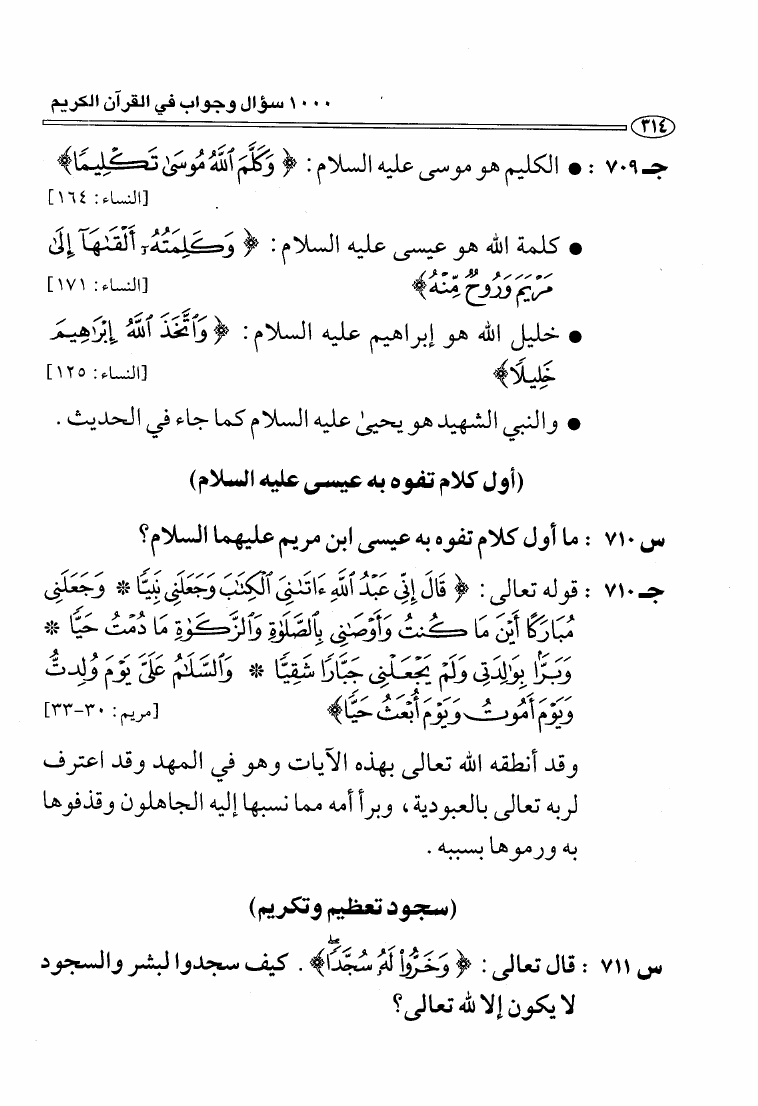 ١٠٠٠ سؤال وجواب في القرآن الكريم
٣١٤
جـ ٧٠٩ : ● الكليم هو موسى عليه السلام : ﴿ وَكَلَّمَ ٱللَّهُ مُوسَىٰ تَكْلِيمًا﴾
[النساء: ١٦٤]
● كلمة الله هو عيسى عليه السلام : ﴿ وَكَلِمَتُهُۥٓ أَلْقَىٰهَآ إِلَىٰ
مَرْيَمَ وَرُوحٌ مِّنْهُ﴾ [النساء: ١٧١]
● خليل الله هو إبراهيم عليه السلام : ﴿وَٱتَّخَذَ ٱللَّهُ إِبْرَٰهِيمَ
خَلِيلًا﴾ [النساء: ١٢٥]
● والنبي الشهيد هو يحيىٰ عليه السلام كما جاء في الحديث .
(أول كلام تفوه به عيسى عليه السلام)
س ٧١٠ : ما أول كلام تفوه به عيسى ابن مريم عليهما السلام؟
جـ ٧١٠ : قوله تعالى : ﴿ قَالَ إِنِّي عَبْدُ ٱللَّهِ ءَاتَىٰنِيَ ٱلْكِتَٰبَ وَجَعَلَنِي نَبِيًّا * وَجَعَلَنِي
مُبَارَكًا أَيْنَ مَا كُنتُ وَأَوْصَٰنِي بِٱلصَّلَوٰةِ وَٱلزَّكَوٰةِ مَا دُمْتُ حَيًّا *
وَبَرًّۢا بِوَٰلِدَتِي وَلَمْ يَجْعَلْنِي جَبَّارًا شَقِيًّا * وَٱلسَّلَٰمُ عَلَيَّ يَوْمَ وُلِدتُّ
وَيَوْمَ أَمُوتُ وَيَوْمَ أُبْعَثُ حَيًّا﴾ [مريم: ٣٠-٣٣]
وقد أنطقه الله تعالى بهذه الآيات وهو في المهد وقد اعترف
لربه تعالى بالعبودية، وبرأ أمه مما نسبها إليه الجاهلون وقذفوها
به ورموها بسببه .
(سجود تعظيم وتكريم)
س ٧١١ : قال تعالى : ﴿ وَخَرُّواْ لَهُۥ سُجَّدًاۖ﴾ . كيف سجدوا لبشر والسجود
لا يكون إلا لله تعالى؟